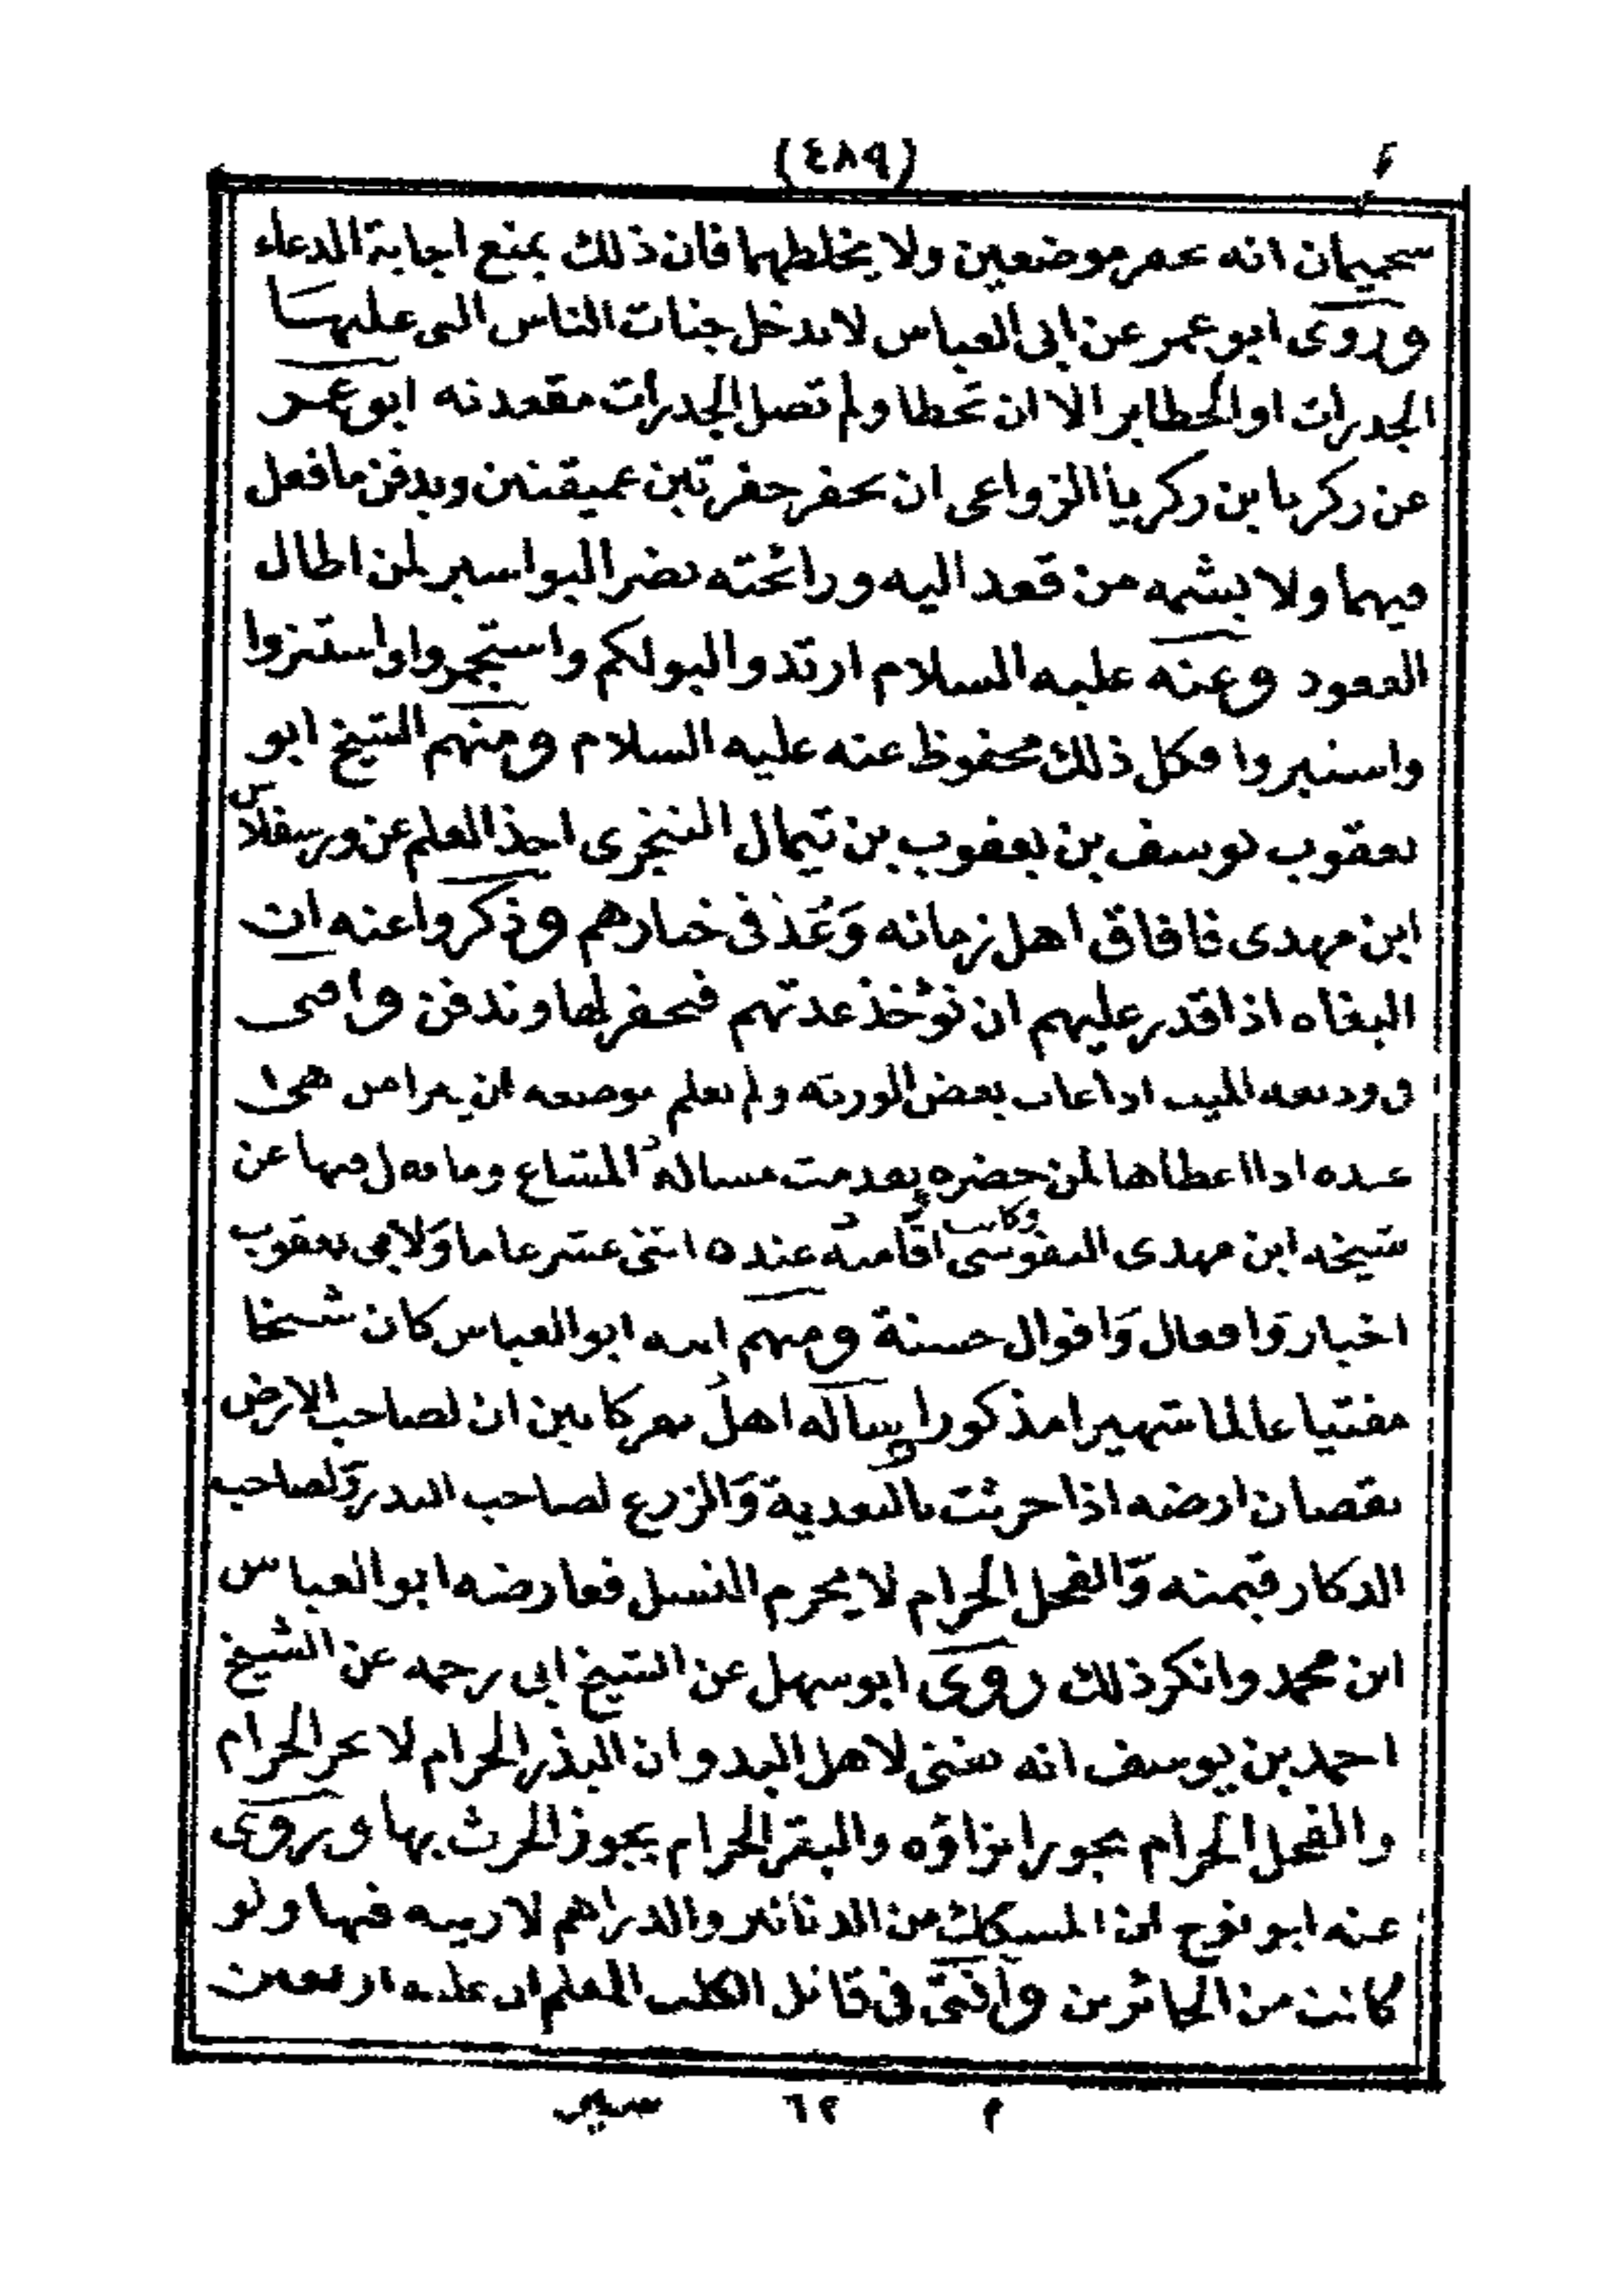 (٤٨٩)
سحميمان انه يحفر موضعين ولا يخلطهما فان ذلك يمنع اجابة الدعاء
وروى ابو عمر عن ابى العباس لا يدخل جنات الناس التى عليها
الجدرات او الحطاير الا ان تخطا ولم تصل الجدرات مقعدته ابو عمر
عن زكريا بن زكريا الزواعى ان يحفر حفرتين عميقتين ويدفن ما فعل
فيهما ولا يشمه من قعد اليه ورائحته تضر البواسير لمن اطال
القعود وعنه عليه السلام ارتدوا لبولكم واستجمروا واستنزوا
واستبروا فكل ذلك محفوظ عنه عليه السلام ومنهم الشيخ ابو
يعقوب يوسف بن يعقوب بن تيمال النخرى اخذ العلم عن ورسفلاس
ابن مهدى فافاق اهل زمانه وَعُدّ فى خيارهم وذكروا عنه ان
البغاه اذا قدر عليهم ان تؤخذ عدتهم فيحفر لها وتدفن وافتى
فى وديعه الميت اذا غاب بعض الورثه ولم يعلم موضعه ان يبرا من هى
عنده اذا اعطاها لمن حضره بعدمت مسالة المشاع وما فيها عن
شيخه ابن مهدى النفوسى وكانت اقامته عنده اثنى عشر عاما وَلابى يعقوب
اخبار وَافعال وَاقوال حسنة ومنهم ابنه ابو العباس كان شيخا
مفتيا عالما شهيرا مذكورا وساله اهل ان لصاحب الارض
نقصان ارضه اذا حرثت بالتعدية وَالزرع لصاحب البذر وَلصاحب
الذكار قيمته وَالفحل الحرام لا يحرم النسل فعارضه ابو العباس
ابن محمد وانكر ذلك روى ابو سهل عن الشيخ ابى رحمه عن الشيخ
احمد بن يوسف انه لاهل البدو ان البذر الحرام لا الحرام
والفحل الحرام يجوز انزاؤه والبقر الحرام يجوز الحرث بها وروى
عنه ابو نوح ان المسكك من الدنانير والدراهم لا ريبه فيها ولو
كانت من الجائرين وافتى فى قاتل الكلب المعلم ان عليه اربعين
م ٦٢ سير